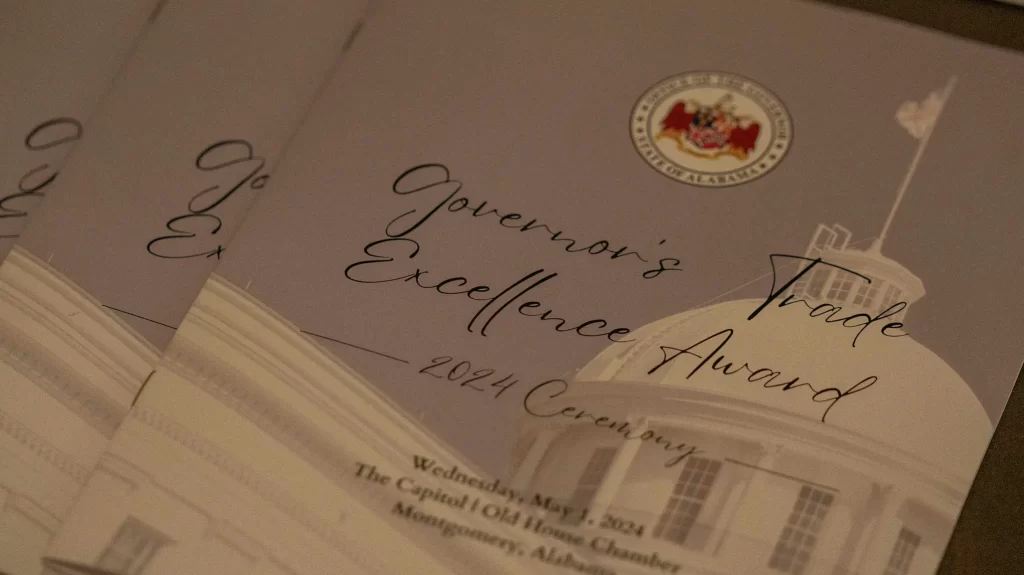 OFFICE OF THE GOVERNOR
STATE OF ALABAMA
Governor's Trade
Excellence Award
2024 Ceremony
Wednesday, May 1, 2024
The Capitol | Old House Chamber
Montgomery, Alabama
Go
Ex
G
E